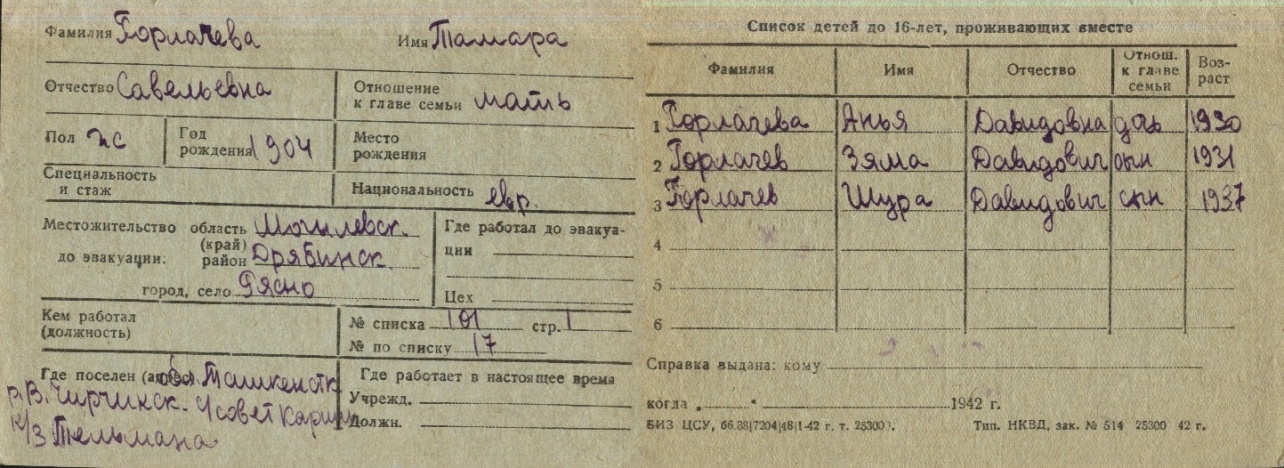 Фамилия Горлачева Имя Тамара
Отчество Савельевна
Отношение к главе семьи мать
Пол ж
Год рождения 1904
Место рождения
Специальность и стаж
Национальность евр.
Местожительство до эвакуации: область (край) Могилевск.
район Дрябинск
город, село Рясно
Где работал до эвакуации
Цех
Кем работал (должность)
№ списка 101 стр. 1
№ по списку 17
Где поселен (адрес) обл. Ташкентск
р. В. Чирчинск. с/совет
к/з Тельмана
Где работает в настоящее время
Учрежд.
Должн.
Список детей до 16-лет, проживающих вместе
Фамилия Имя Отчество Отнош. к главе семьи Возраст
1 Горлачева Анья Давидовна дочь 1930
2 Горлачев Зяма Давидович сын 1931
3 Горлачев Шура Давидович сын 1937
4
5
6
Справка выдана: кому
когда „ “ 1942 г.
БИЗ ЦСУ, 66.88|7204|48|1-42 г. т. 25300. Тип. НКВД, зак. № 514 25300 42 г.